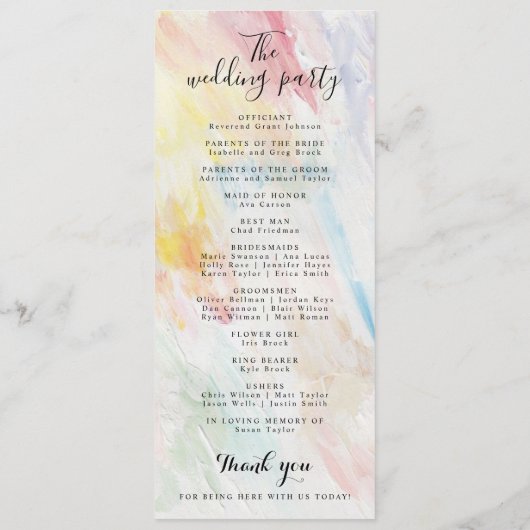 The
wedding party
OFFICIANT
Reverend Grant Johnson
PARENTS OF THE BRIDE
Isabelle and Greg Brock
PARENTS OF THE GROOM
Adrienne and Samuel Taylor
MAID OF HONOR
Ava Carson
BEST MAN
Chad Friedman
BRIDESMAIDS
Marie Swanson | Ana Lucas
Holly Rose | Jennifer Hayes
Karen Taylor | Erica Smith
GROOMSMEN
Oliver Bellman | Jordan Keys
Dan Cannon | Blair Wilson
Ryan Witman | Matt Roman
FLOWER GIRL
Iris Brock
RING BEARER
Kyle Brock
USHERS
Chris Wilson | Matt Taylor
Jason Wells | Justin Smith
IN LOVING MEMORY OF
Susan Taylor
Thank you
FOR BEING HERE WITH US TODAY!